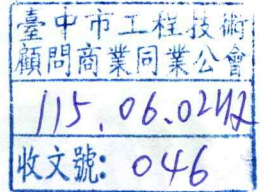 臺中市工程技術
顧問商業同業公會
115.06.02收
收文號: 046